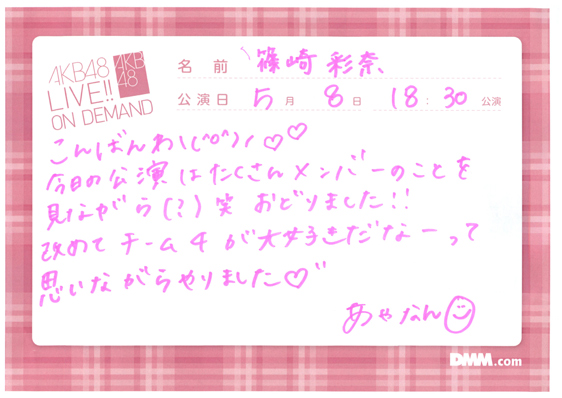 AKB48
LIVE!!
ON DEMAND
AKB
48
名前 篠崎彩奈
公演日 5月 8日 18:30 公演
こんばんわ\(^o^)/♡♡
今日の公演はたくさんメンバーのことを
見ながら(?)笑 おどりました!!
改めてチーム4が大好きだなーって
思いながらやりました♡"
あやなん
DMM.com